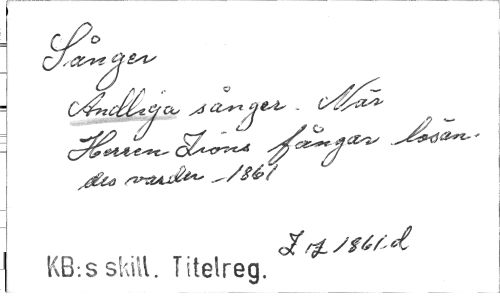 Sånger
Andliga sånger. När
Herren Zions fångar losan-
des varder - 1861
1861.d
KB:s skill. Titelreg.